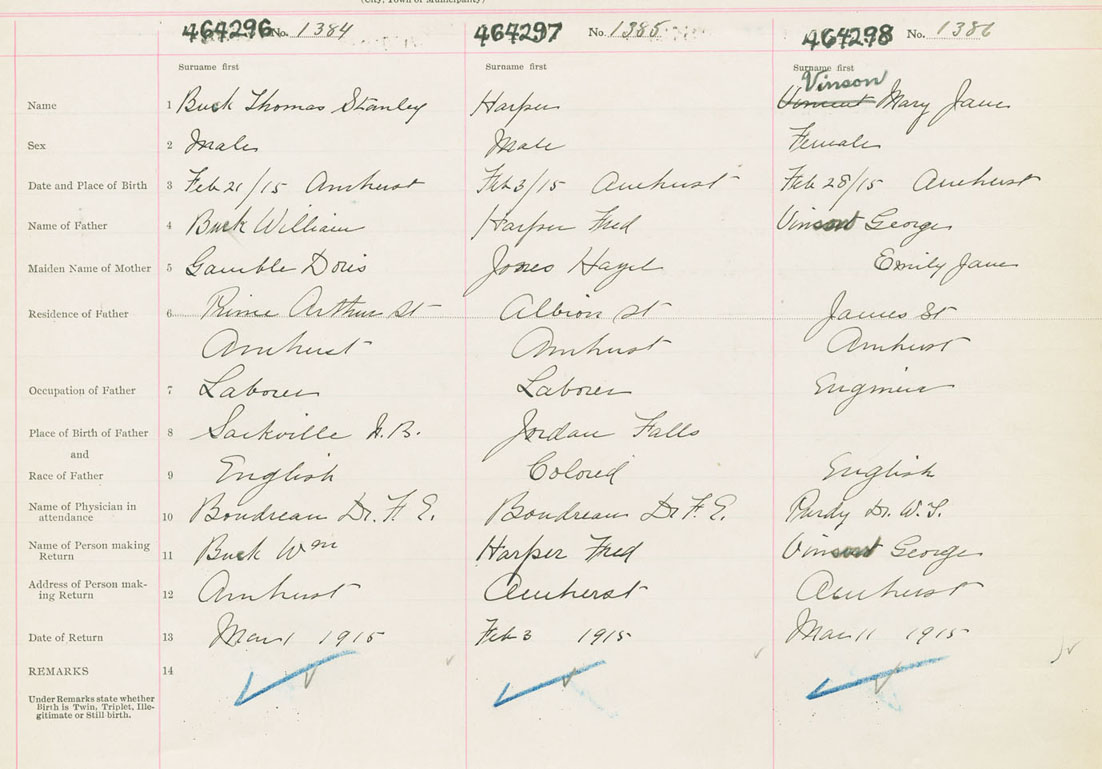 (City, Town or Municipality)
464296 No. 1384 464297 No. 1385 464298 No. 1386
Surname first Surname first Surname first
Vinson
Name 1 Buck Thomas Stanley Harper Vincent Mary Jane
Sex 2 Male Male Female
Date and Place of Birth 3 Feb 21/15 Amherst Feb 3/15 Amherst Feb 28/15 Amherst
Name of Father 4 Buck William Harper Fred Vinson George
Maiden Name of Mother 5 Gamble Doris Jones Hazel Emily Jane
Residence of Father 6 Arthur St Albion St James St
Amherst Amherst Amherst
Occupation of Father 7 Laborer Laborer Engineer
Place of Birth of Father 8 Sackville N.B. Jordan Falls
and
Race of Father 9 English Colored English
Name of Physician in
attendance 10 Boudreau Dr. F. E. Boudreau Dr F. E. Purdy Dr. W. T.
Name of Person making
Return 11 Buck Wm Harper Fred Vinson George
Address of Person mak-
ing Return 12 Amherst Amherst Amherst
Date of Return 13 Mar 1 1915 Feb 3 1915 Mar 11 1915
REMARKS 14
Under Remarks state whether
Birth is Twin, Triplet, Ille-
gitimate or Still birth.